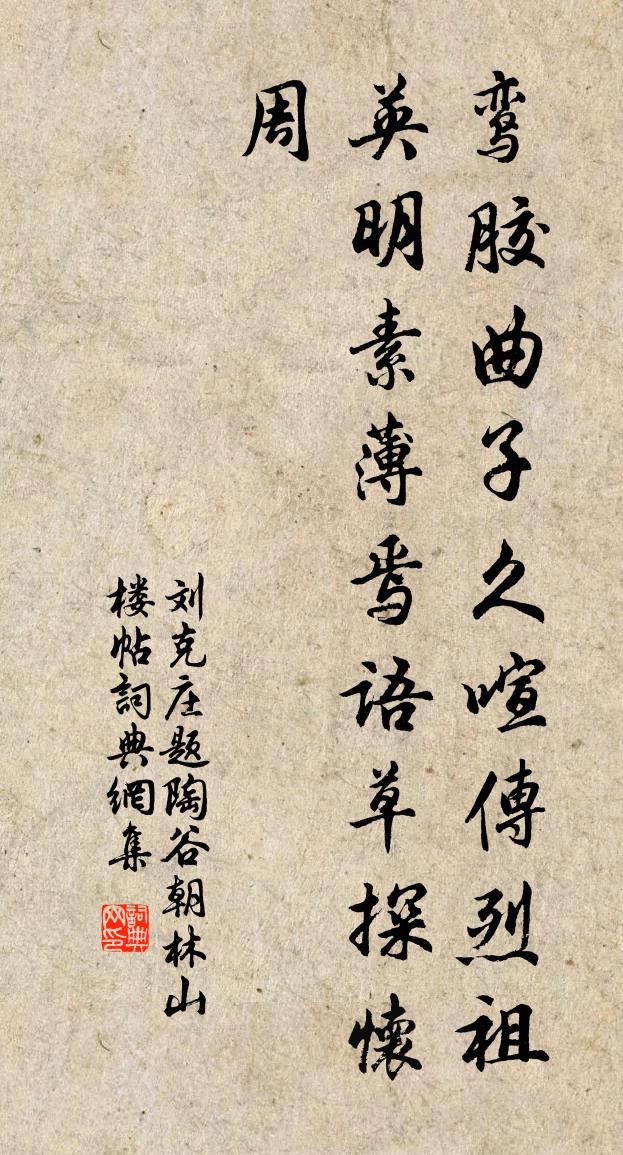 鸾胶曲子久喧傳烈祖
英明素薄焉语草探懷
周
刘克庄题陶谷朝林山
楼帖詞典網集
詞典
网印